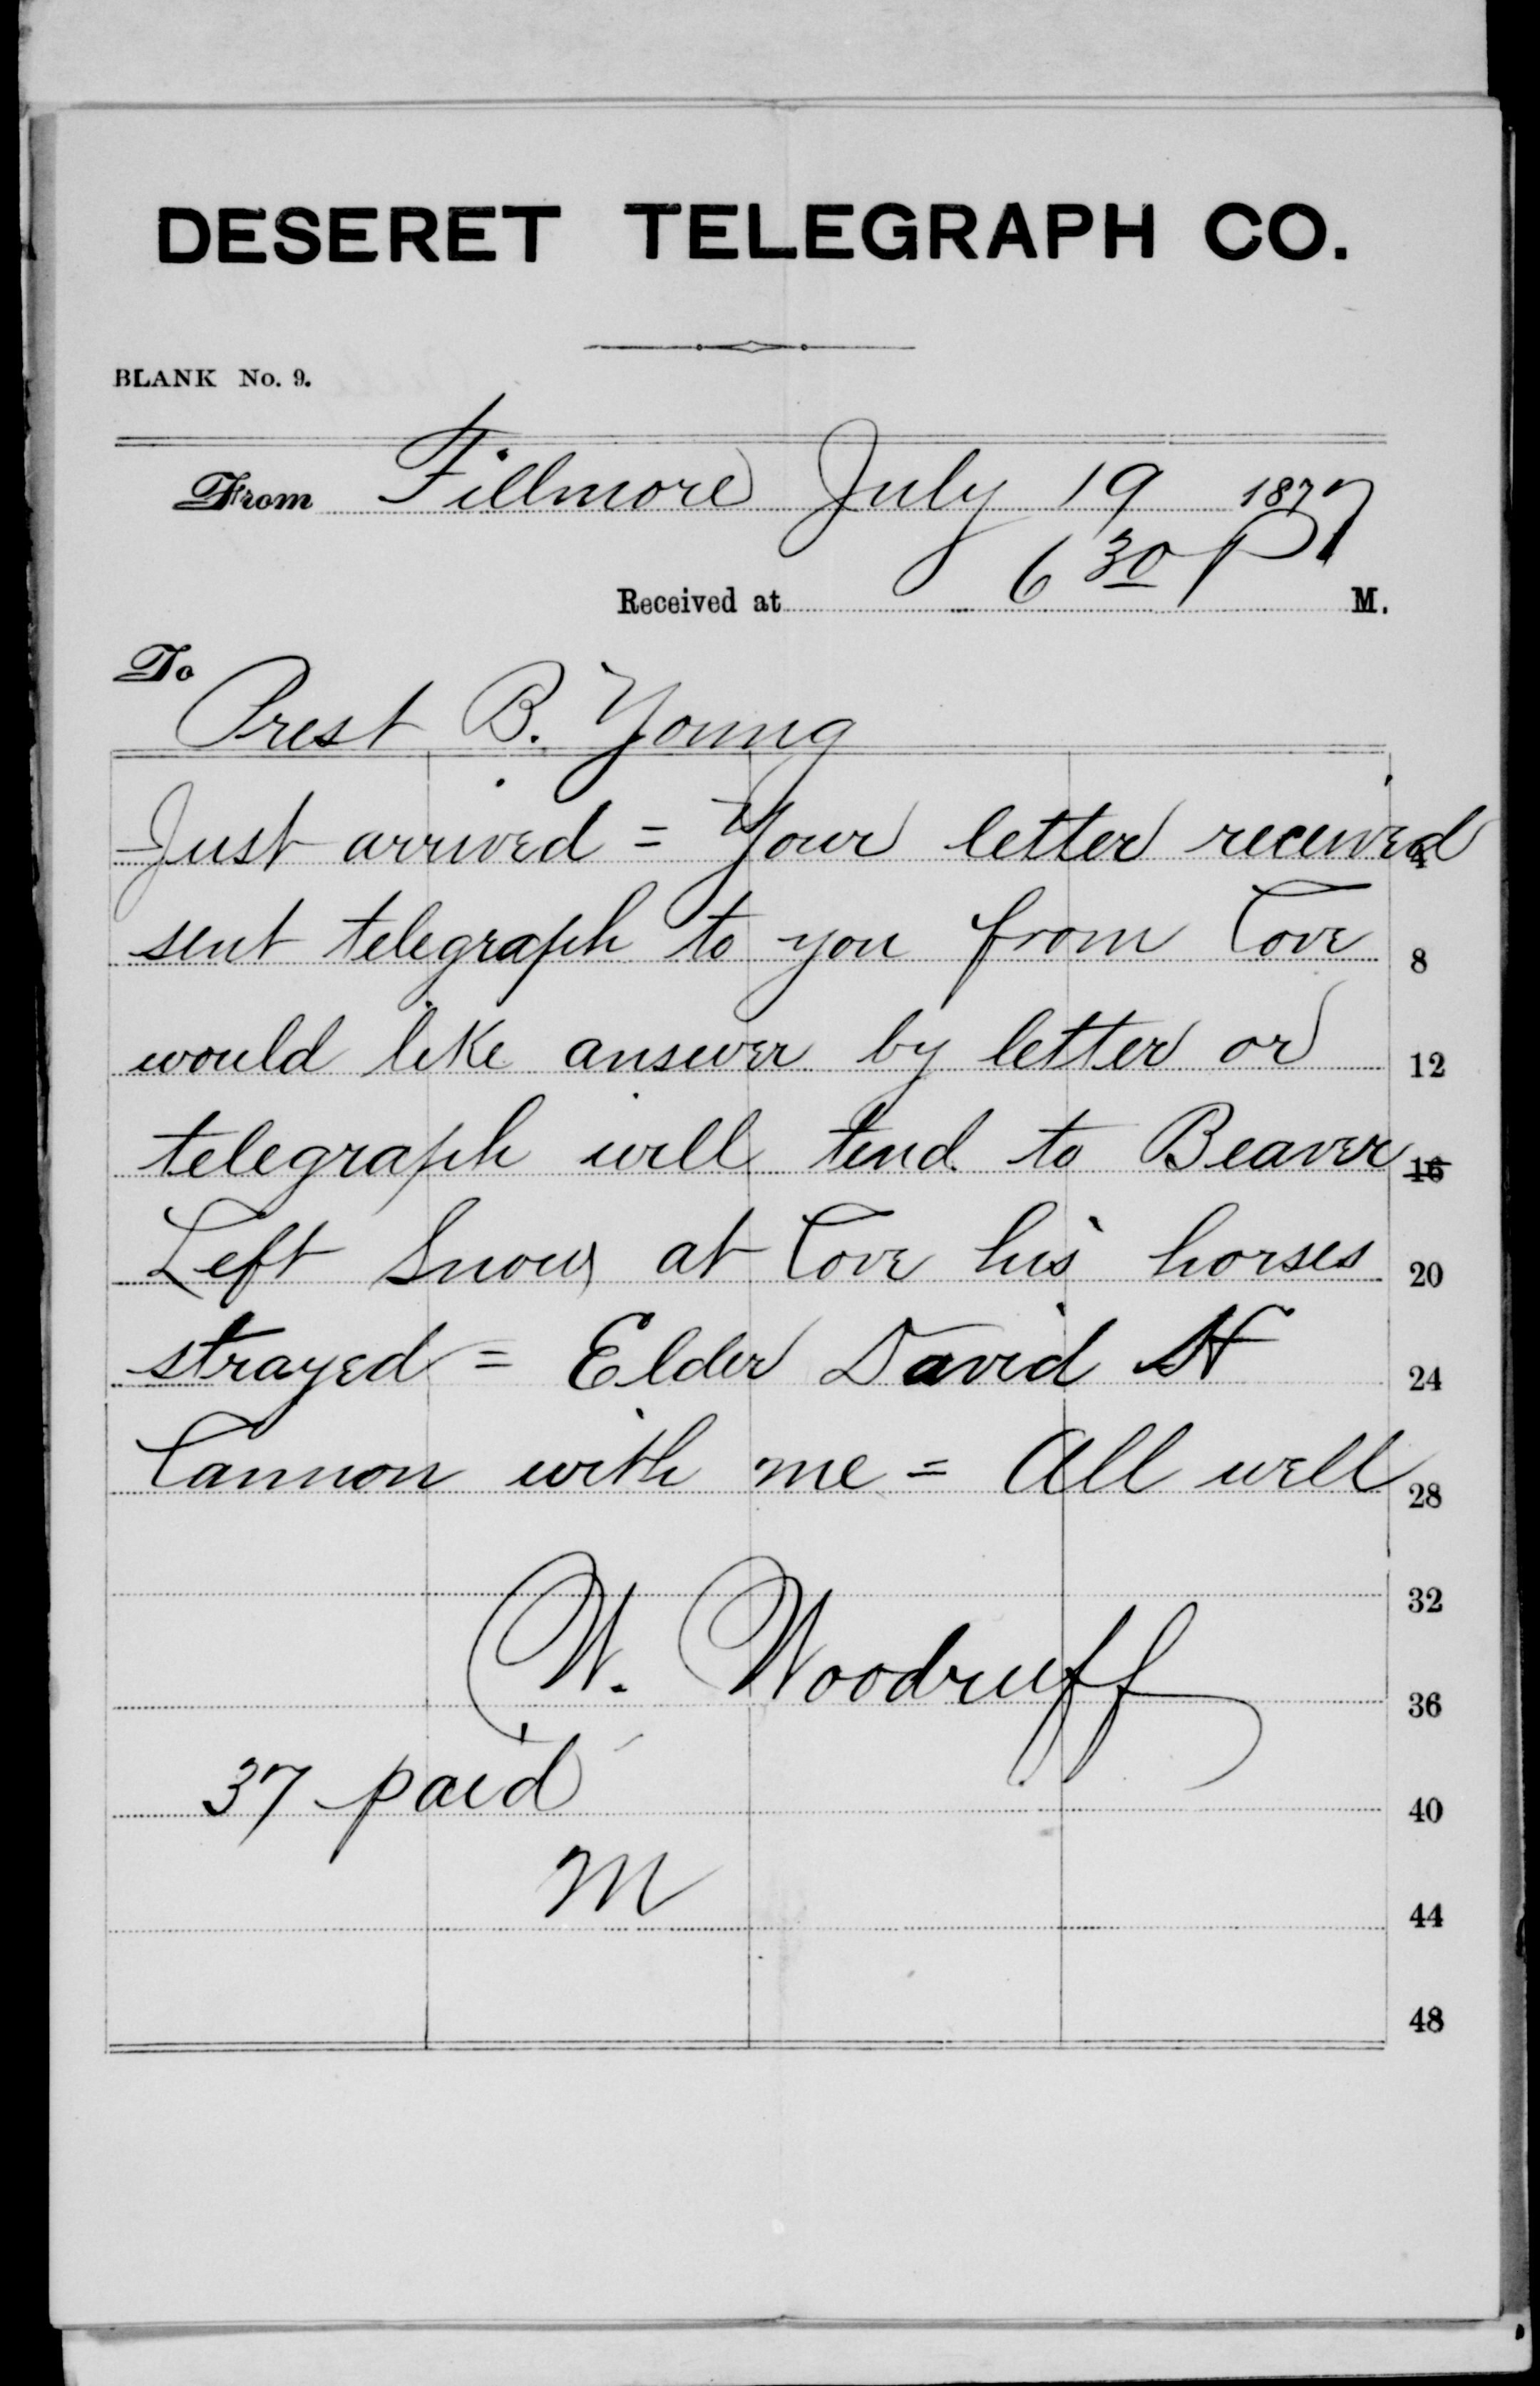 DESERET TELEGRAPH CO.
BLANK No. 9.
From Fillmore July 19 1877
Received at 6 30 P M.
To
Prest B. Young
Just arrived = Your letter received 4
sent telegraph to you from Cove 8
would like answer by letter or 12
telegraph will tend to Beaver 16
Left Snow at Cove his horses 20
strayed = Elder David H 24
Cannon with me = All well 28
32
W. Woodruff
36
37 paid
40
M
44
48